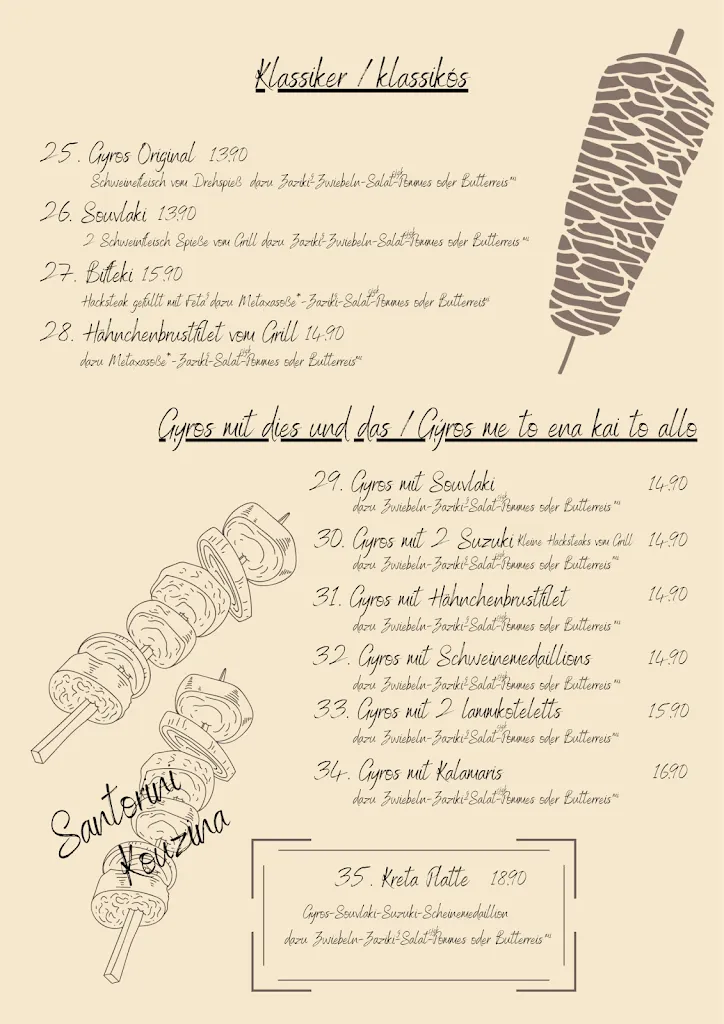 Klassiker / klassikós
25. Gyros Original 13.90
Schweinefleisch vom Drehspieß dazu Zaziki-Zwiebeln-Salat-Pommes oder Butterreis
26. Souvlaki 13.90
2 Schweinfleisch Spieße vom Grill dazu Zaziki-Zwiebeln-Salat-Pommes oder Butterreis
27. Bifteki 15.90
Hacksteak gefüllt mit Feta dazu Metaxasoße*-Zaziki-Salat-Pommes oder Butterreis
28. Hähnchenbrustfilet vom Grill 14.90
dazu Metaxasoße*-Zaziki-Salat-Pommes oder Butterreis
Gyros mit dies und das / Gýros me to ena kai to allo
29. Gyros mit Souvlaki 14.90
dazu Zwiebeln-Zaziki-Salat-Pommes oder Butterreis
30. Gyros mit 2 Suzuki Kleine Hacksteaks vom Grill 14.90
dazu Zwiebeln-Zaziki-Salat-Pommes oder Butterreis
31. Gyros mit Hähnchenbrustfilet 14.90
dazu Zwiebeln-Zaziki-Salat-Pommes oder Butterreis
32. Gyros mit Schweinemedaillions 14.90
dazu Zwiebeln-Zaziki-Salat-Pommes oder Butterreis
33. Gyros mit 2 lammkoteletts 15.90
dazu Zwiebeln-Zaziki-Salat-Pommes oder Butterreis
34. Gyros mit Kalamaris 16.90
dazu Zwiebeln-Zaziki-Salat-Pommes oder Butterreis
Santorini
Kouzina
35. Kreta Platte 18.90
Gyros-Souvlaki-Suzuki-Scheinemedaillion
dazu Zwiebeln-Zaziki-Salat-Pommes oder Butterreis